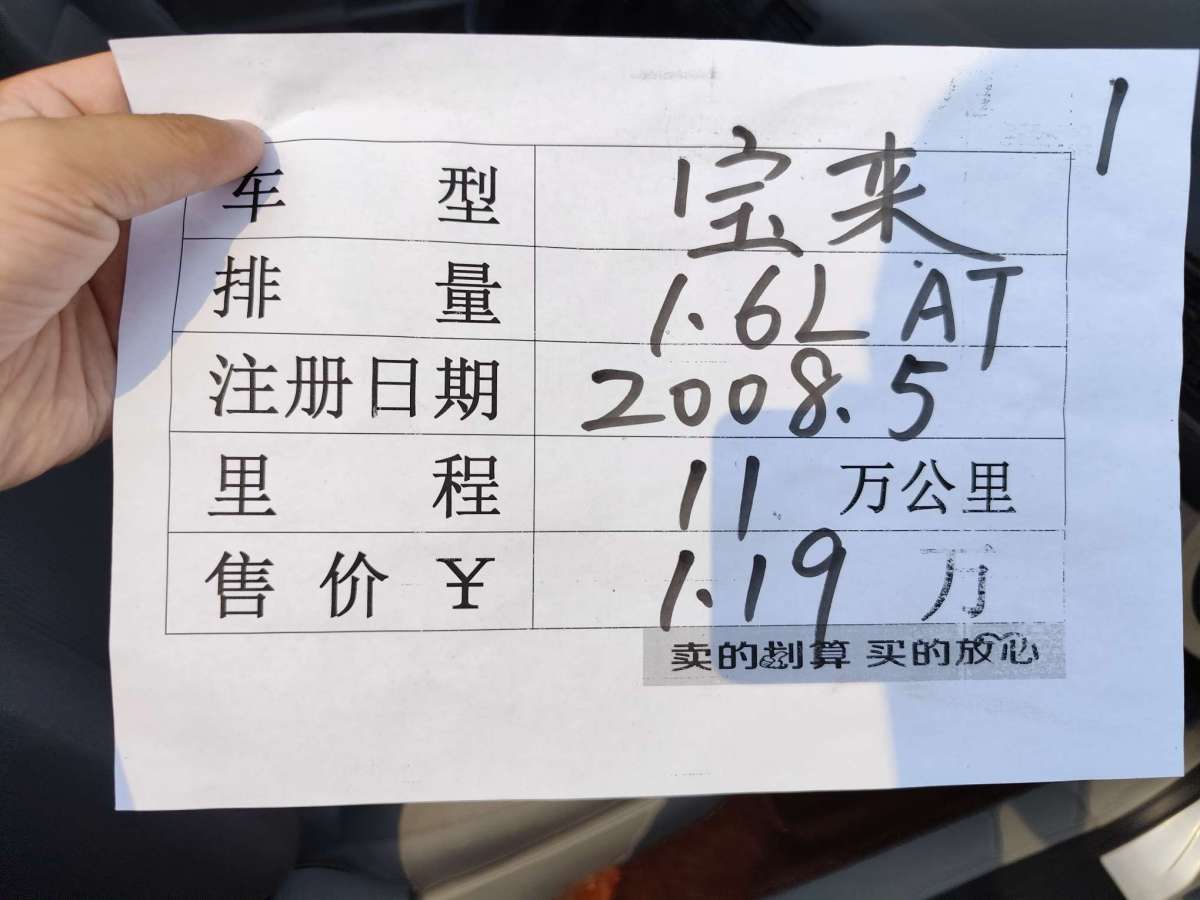 1
车型 宝来
排量 1.6L AT
注册日期 2008.5
里程 11 万公里
售价¥ 1.19 万
卖的划算 买的放心